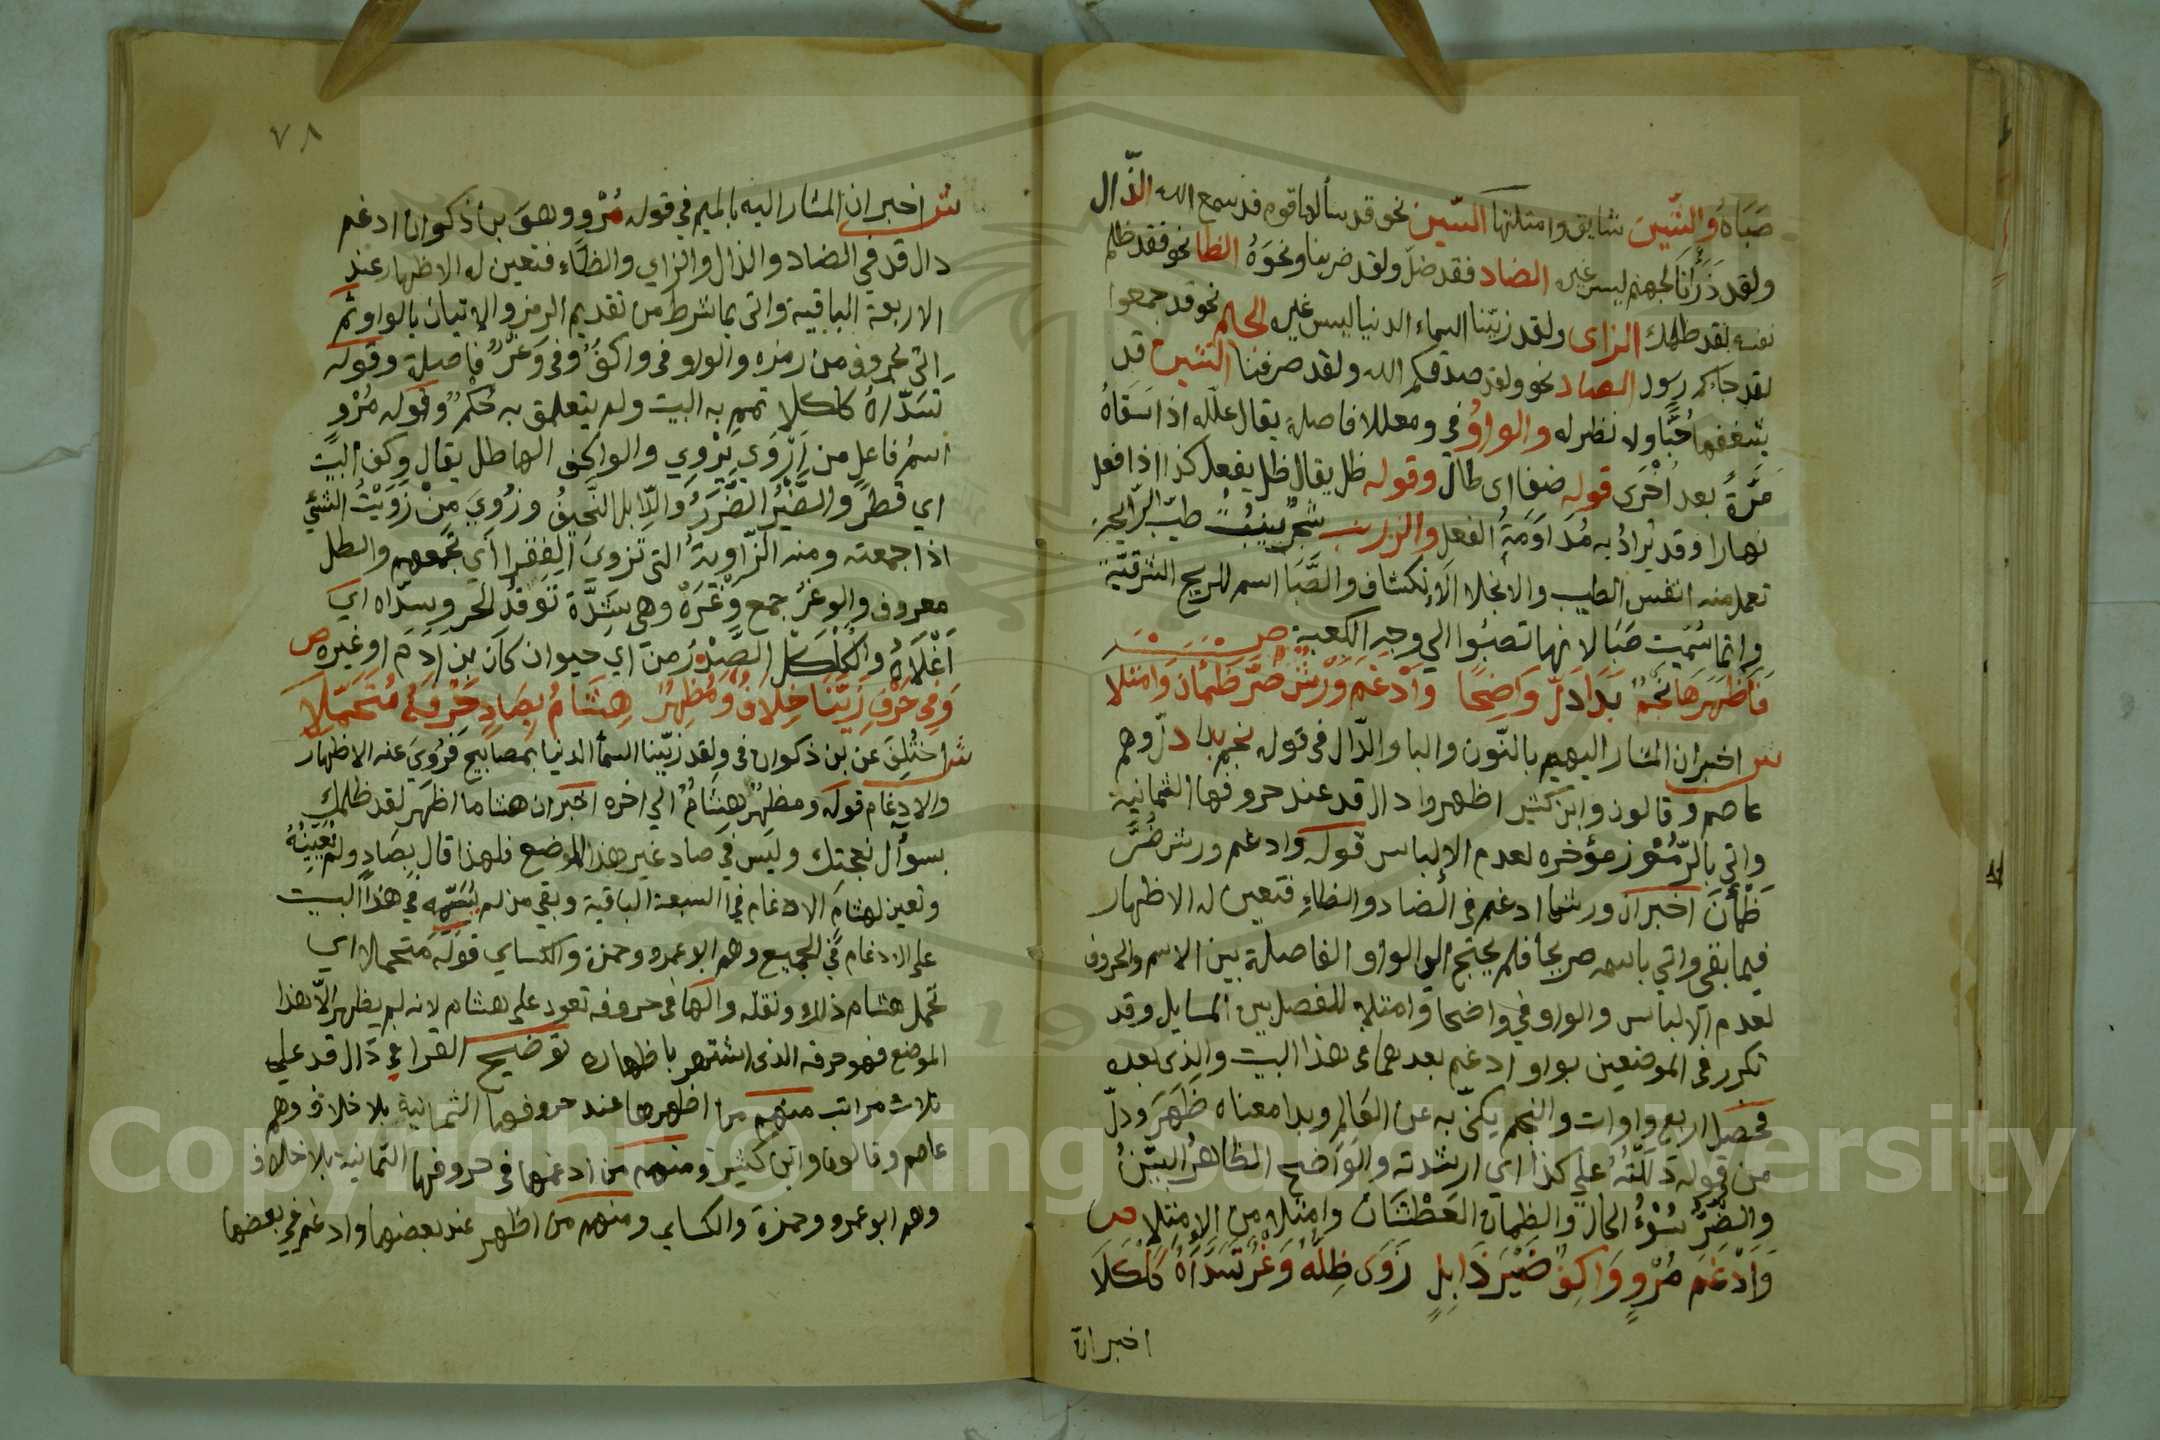 صَبَاهُ والسّين شايق وامثلتها السّين نحو قد سألها قوم قد سمع الله الذّال
ولقد ذَرَأنَا لجهنم ليس غيره الضاد فقد ضلّ ولقد ضربنا ونحوَهُ الظا نحو فقد ظلم
نفسه لقد ظلمك الزاى ولقد زيّنا السماء الدنيا ليس غيره الجيم نحو قد جمعوا
لقد جاءكم رسول الصاد نحو ولقد صدقكم الله ولقد صرفنا الشين قد
شغفها حُبًّا ولا نظير له والواوُ في ومعللا فاصلة يقال علّله اذا سَقَاهُ
مَرَّةً بعد اُخْرَى قوله ضفا اى طال وقوله ظل يقال ظل يفعل كذا اذا فعل
نهارا وقد يُرادُ به مُدَاوَمَةُ الفعل والزرنب شجر ينبُتُ طيّب الرّايحة
تعمل منه انفس الطيب والانجلا الاِنكشاف والصَّبَا اسم للريح الشرقيّة
وانما سُمّيت صَبَا لانها تصبُوا الي وجه الكعبة ص
فَاَظْهَرَهَا نَجْمٌ بَدَا دَلَّ وَاضِحًا وَاَدْغَمَ وَرْشٌ ضَرَّ ظَمْأنَ وَامتلا
ش اخبر ان المشار اليهم بالنّون والبا والدّال فى قوله نجم بدا دلّ وهم
عاصم وقالون وابن كثير اظهروا دال قد عند حروفها الثمانية
واتي بالرّمُوز مؤخره لعدم الإلباس قوله وادغم ورش ضَرَّ
ظَمْأنَ اخبر ان ورشا ادغم فى الضاد والظاءِ فتعين له الاظهار
فيما بقى واتي باسمه صريحا فلم يحتج الي الواو الفاصلة بين الاسم والحروف
لعدم الالباس والواو في واضحا وامتلا للفصل بين المسايل وقد
تكرر فى الموضعين بواو ادغم بعدهما فى هذا البيت والذى بعده
فحصل اربع واوات والنجم يكنّى به عن العَالِم وبدا معناه ظَهَرَ ودلّ
من قوله دَلَلْتُهُ علي كذا اي ارشدته والوَاضح الظاهرُ البيّنُ
والضُّرُّ سُوْءُ الحال والظمان العَطْشَان وامتلا من الاِمتِلا ص
وَاَدْغَمَ مُرْوٍ وَاكِفٌ ضَيْرَ ذَابِلٍ زَوَى ظِلَّهُ وَغْرٌ تَسَدَّاهُ كَلْكَلَا
اخبر ان
٧٨
ش اخبر ان المشار اليه بالميم في قوله مُرْوٍ وهو بن ذكوان ادغم
دال قد في الضاد والذال والزاي والظاء فتعين له الاظهار عند
الاربعة الباقية واتى بما شرط من تقديم الرمز والاتيان بالواو ثم
اتى بحروف من رمزه والواو فى واكفٌ وفى وَغْرٌ فاصلة وقوله
تَسَدَّاهُ كلكلا تمم به البيت ولم يتعلق به حُكْمٌ وقوله مُرْوٍ
اسمُ فاعلٍ من اَرْوَي يُرْوِي والواكف الهاطل يقال وكف البيتُ
اي قَطَرَ والضَّيْرُ الضَّرَرُ والذّابل النَّحِيفُ وزُوِيَ مِنْ زَوَيْتُ الشئ
اذا جمعته ومنه الزّاويةُ التى تزوي الفقرا اي تجمعهم والظل
معروف والوغْرُ جمع وَغْرَةٍ وهى شِدَّة تَوقّدُ الحَر وتسدّاه اي
اَعْلَاهُ والكَلْكَلُ الصَّدْرُ من اي حيوان كان بن ادَم او غيره ص
وَفِي حَرْفِ زَيَّنَا خِلَافٌ وَمُظْهِرٌ هِشَامٌ بِصَادٍ حَرْفَهُ مُتَحَمِّلَا
ش اختُلِف عن بن ذكوان فى ولقد زيّنا السماَ الدنيا بمصابيح فرُوِيَ عنه الاظهار
والادغام قوله ومظهرٌ هشامٌ الي اخره اخبر ان هشاما اظهَر لقد ظلمك
بسوال نعجتك وليس في صاد غير هذا الموضع فلهذا قال بِصَادٍ ولم يُعَيِّنْهُ
وتعين لهشام الادغام في السبعة الباقية وبقي من لم يُسَمّه في هذا البيت
على الادغام في الجميع وهم ابو عمرو وحمزة والكساي قوله متحملا اي
تحمل هشام ذلك ونقله والها فى حروفه تعود على هشام لانه لم يظهر الّا هذا
الموضع فهو حرفه الذى اشتهر باظهاره توضيح القرا في دَال قد علي
ثلاث مراتب منهم من اظهرها عند حروفها الثمانية بلا خلاف وهم
عاصم وقالون وابن كثير ومنهم من ادغمها فى حروفها الثمانية بلا خلاف
وهم ابو عمرو وحمزة والكساي ومنهم من اظهر عند بعضها وادغم في بعضها
Copyright © King Saud University